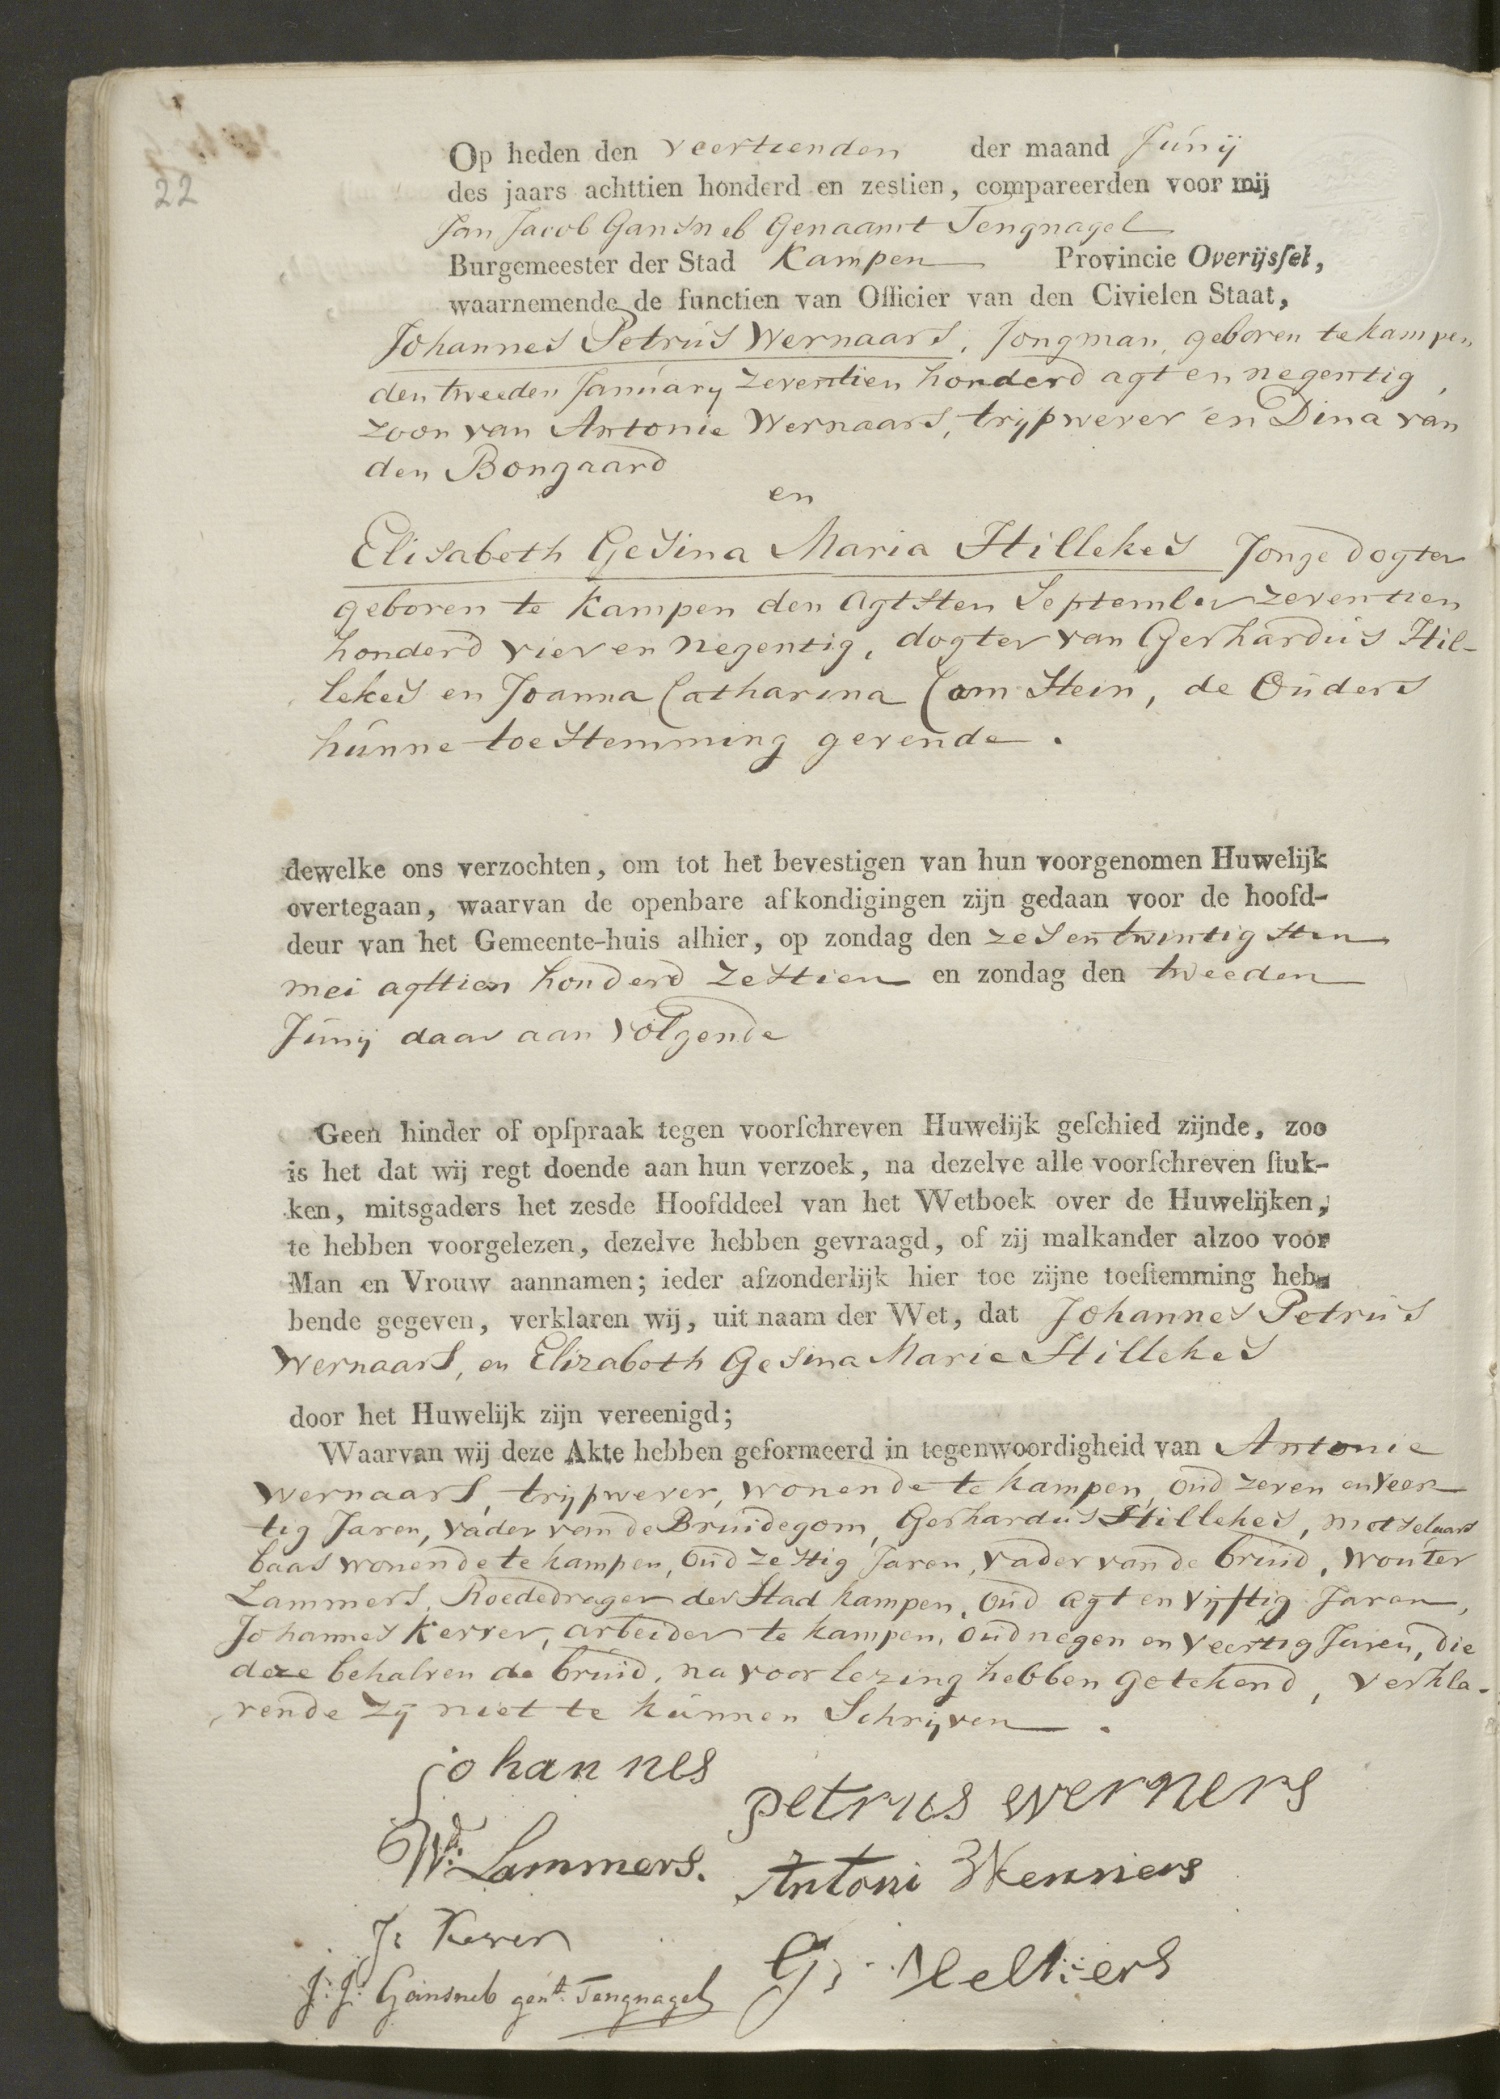 22
Op heden den veertienden der maand Junij
des jaars achttien honderd en zestien, compareerden voor mij
Jan Jacob Gansneb Genaamt Tengnagel
Burgemeester der Stad Kampen Provincie Overijssel,
waarnemende de functien van Officier van den Civielen Staat,
Johannes Petrus Wernaars, Jongman, geboren te Kampen
den tweeden January zeventien honderd agt en negentig,
zoon van Antonie Wernaars, trijpwever en Dina van
den Bongaard
en
Elisabeth Gesina Maria Hillekes Jonge dogter
geboren te Kampen den agtsten September zeventien
honderd vier en negentig, dogter van Gerhardus Hil-
lekes en Joanna Catharina Cam Stein, de Ouders
hunne toestemming gevende.
dewelke ons verzochten, om tot het bevestigen van hun voorgenomen Huwelijk
overtegaan, waarvan de openbare afkondigingen zijn gedaan voor de hoofd-
deur van het Gemeente-huis alhier, op zondag den zes en twintigsten
mei agttien honderd zestien en zondag den tweeden
Junij daar aan volgende
Geen hinder of opspraak tegen voorschreven Huwelijk geschied zijnde, zoo
is het dat wij regt doende aan hun verzoek, na dezelve alle voorschreven stuk-
ken, mitsgaders het zesde Hoofddeel van het Wetboek over de Huwelijken,
te hebben voorgelezen, dezelve hebben gevraagd, of zij malkander alzoo voor
Man en Vrouw aannamen; ieder afzonderlijk hier toe zijne toestemming heb-
bende gegeven, verklaren wij, uit naam der Wet, dat Johannes Petrus
Wernaars, en Elizabeth Gesina Marie Hillekes
door het Huwelijk zijn vereenigd;
Waarvan wij deze Akte hebben geformeerd in tegenwoordigheid van Antonie
Wernaars, trijpwever, wonende te Kampen, oud zeven en veer-
tig Jaren, vader van de Bruidegom, Gerhardus Hillekes, metselaars
baas wonende te Kampen, oud zestig Jaren, vader van de bruid, Wouter
Lammers, Roededrager der Stad Kampen, oud agt en vijftig Jaren,
Johannes Kerver, arbeider te Kampen, oud negen en veertig Jaren, die
deze behalven de bruid, na voorlezing hebben getekend, verkla-
rende zij niet te kunnen Schrijven.
johannes petrus werners
Wr. Lammers. Antoni Wenners
J: Kerver
J: J: Gansneb gent. Tengnagel G: